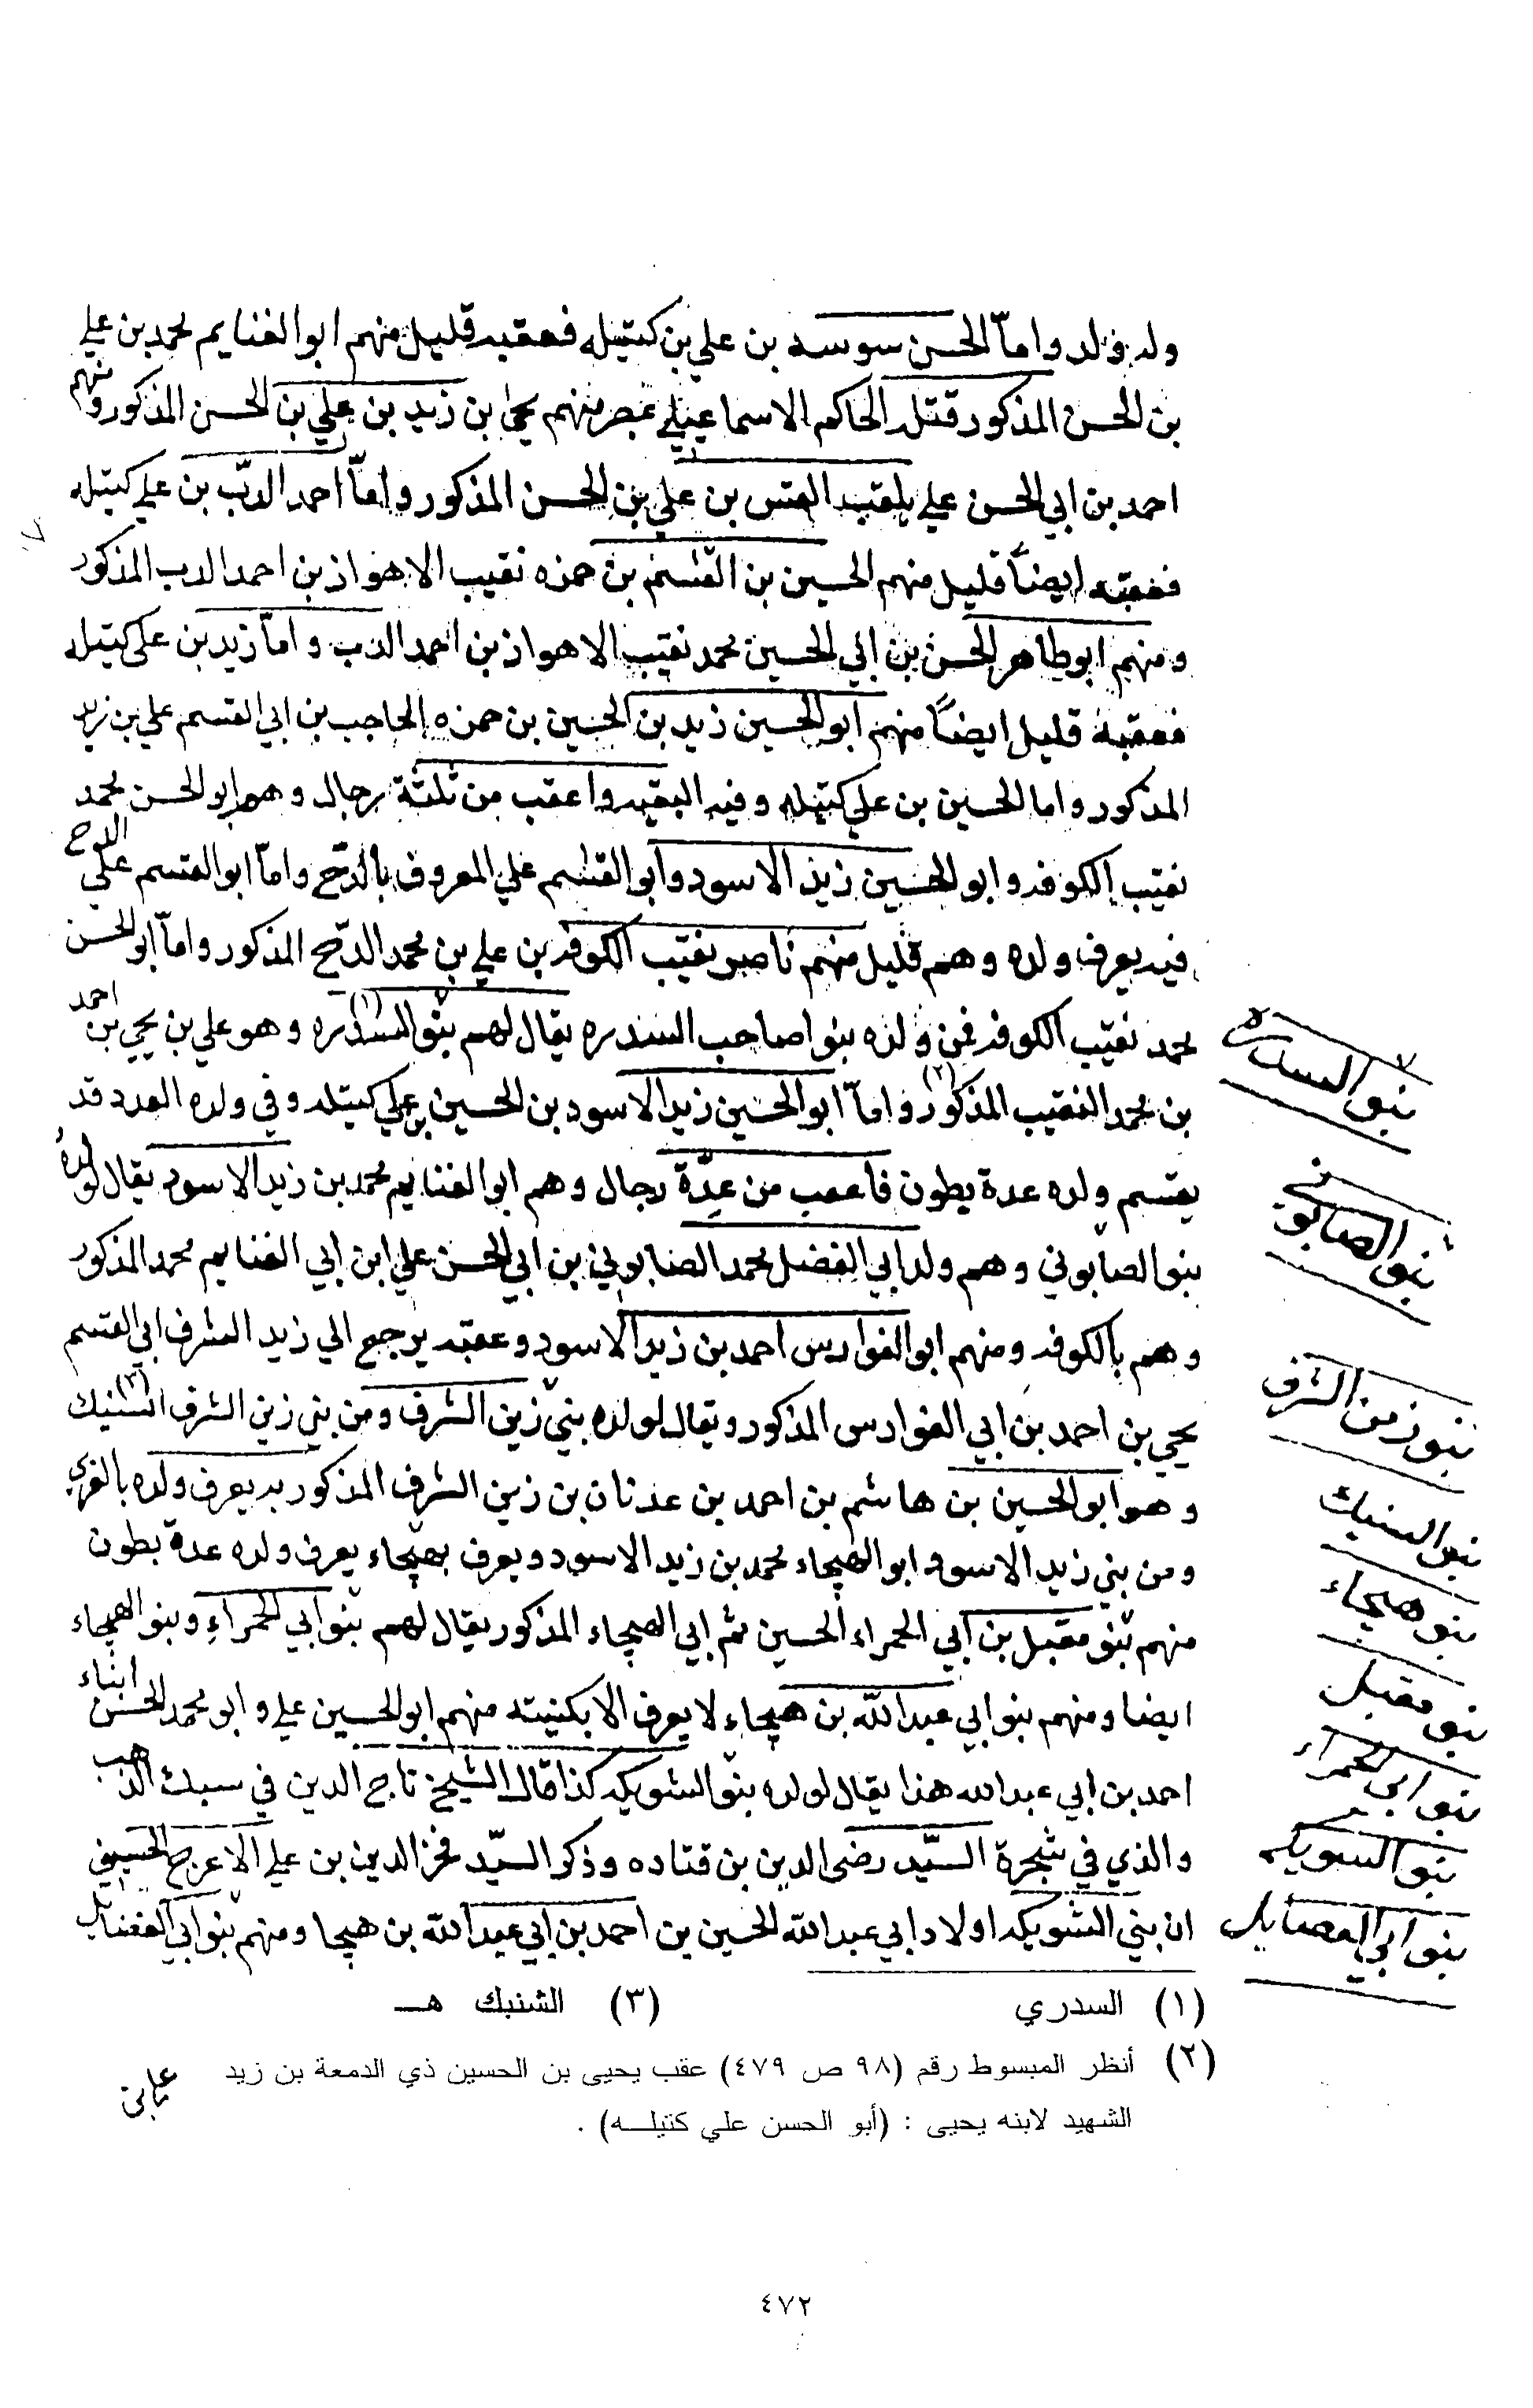 ولد فولد واما الحسن سوسه بن علي بن كتيله فعقبه قليل منهم ابو الغنايم محمد بن علي
بن الحسن المذكور قتله الحاكم الاسماعيلي بمصر منهم يحيى بن زيد بن علي بن الحسن المذكور ومنهم
احمد بن ابي الحسن علي يلقب بن علي بن الحسن المذكور واما احمد الدب بن علي كتيله
فعقبه ايضاً قليل منهم الحسين بن القسم بن حمزه نقيب الاهواز بن احمد الدب المذكور
ومنهم ابو طاهر الحسن بن ابي الحسين محمد نقيب الاهواز بن احمد الدب واما زيد بن علي كتيله
فعقبه قليل ايضاً منهم ابو الحسين زيد بن الحسين بن حمزه الحاجب بن ابي القسم علي بن زيد
المذكور واما الحسين بن علي كتيله وفيه البقيه واعقب من ثلثة رجال وهم ابو الحسن محمد
نقيب الكوفه وابو الحسين زيد الاسود وابو القاسم علي المعروف بالدخ واما ابو القسم علي الدخ
فبه يعرف ولده وهم قليل منهم ناصر نقيب الكوفه بن علي بن محمد الدخ المذكور واما ابو الحسن
محمد نقيب الكوفه فمن ولده بنو صاحب السدره يقال لهم بنو السدره (١) وهو علي بن يحيى بن احمد
بن محمد النقيب المذكور (٢) واما ابو الحسين زيد الاسود بن الحسين بن علي كتيله وفي ولده العدد قد
يقسم ولده عدة بطون فاعقب من عدة رجال وهم ابو الغنايم محمد بن زيد الاسود يقال لولده
بنو الصابوني وهم ولد ابي الفضل محمد الصابوني بن ابي الحسن علي ابن ابي الغنايم محمد المذكور
وهم بالكوفه ومنهم ابو الفوارس احمد بن زيد الاسود وعقبه يرجع الي زيد الشرف ابي القسم
يحيى بن احمد بن ابي الفوارس المذكور ويقال لولده بني زين الشرف ومن بني زين الشرف الشنبك (٣)
وهو ابو الحسين بن هاشم بن احمد بن عدنان بن زين الشرف المذكور به يعرف ولده بالغري
ومن بني زيد الاسود ابو الهيجاء محمد بن زيد الاسود ويعرف بهيجاء يعرف ولده عدة بطون
منهم بنو مقبل بن ابي الحمراء الحسين ثم ابي الهيجاء المذكور يقال لهم بنو ابي الحمراء وبنو الهيجاء
ايضا ومنهم بنو ابي عبدالله بن هيجاء لا يعرف الا بكنيته منهم ابو الحسين علي وابو محمد الحسن ابناء
احمد بن ابي عبدالله هذا يقال لولده بنو الشويكه كذا قال الشيخ تاج الدين في سبك الذهب
والذي في شجرة السيد رضي الدين بن قتاده وذكر السيد فخر الدين بن علي الاعرج الحسيني
ان بني الشويكه اولاد ابي عبدالله الحسين بن احمد بن ابي عبدالله بن هيجا ومنهم بنو ابي الفضايل
بنو السدره
بنو الصابوني
بنو زين الشرف
بنو الشنبك
بنو هيجاء
بنو مقبل
بنو ابي الحمراء
بنو الشويكه
بنو ابي الفضايل
(١) السدري (٣) الشنبك هـ
(٢) أنظر المبسوط رقم (٩٨ ص ٤٧٩) عقب يحيى بن الحسين ذي الدمعة بن زيد
الشهيد لابنه يحيى : (أبو الحسن علي كتيلـــه) .
٤٧٢